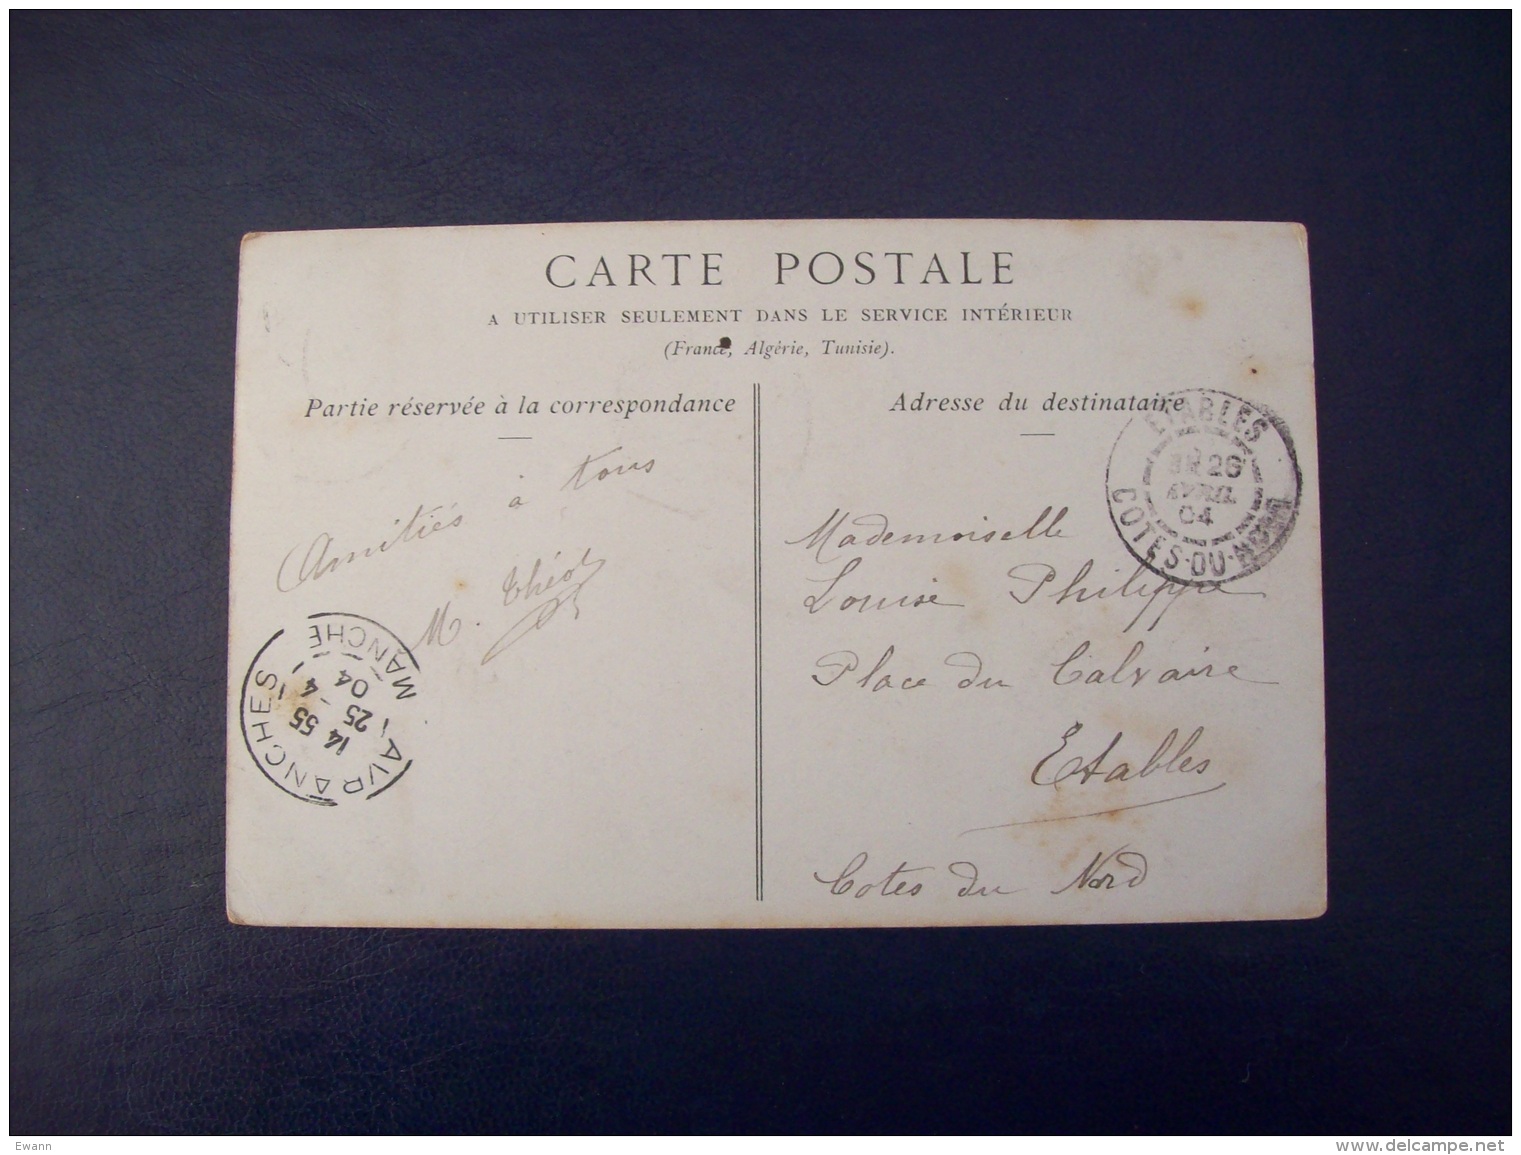 CARTE POSTALE
A UTILISER SEULEMENT DANS LE SERVICE INTÉRIEUR
(France, Algérie, Tunisie).
Partie réservée à la correspondance
Amitiés à tous
M.
AVRANCHES
14 55
25 - 4
04
MANCHE
Adresse du destinataire
ETABLES
26
AVRIL
04
COTES-DU-NORD
Mademoiselle
Louise Philippe
Place du Calvaire
Etables
Cotes du Nord
Ewann
www.delcampe.net